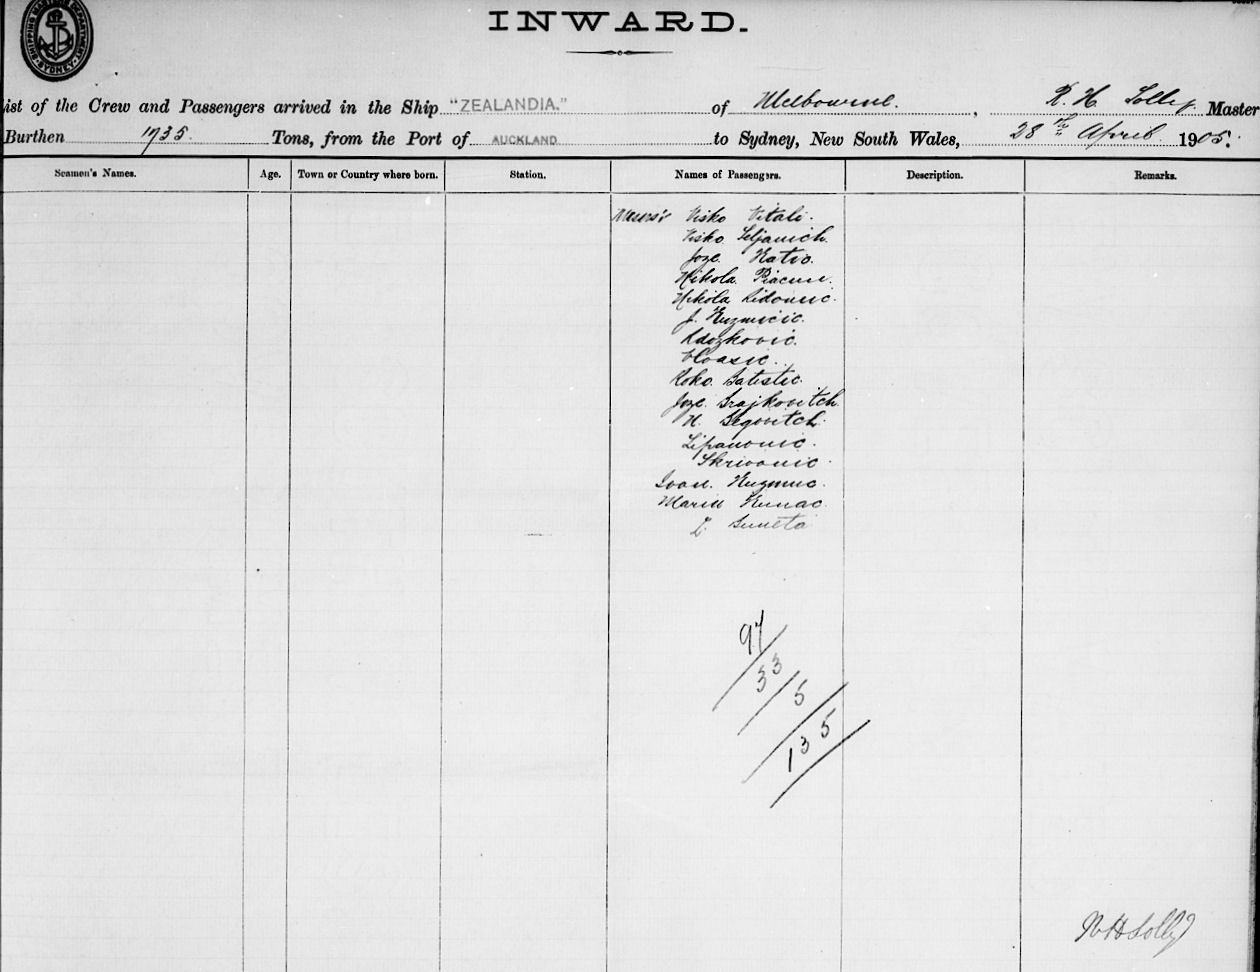 INWARD.
SHIPPING MASTERS DEPARTMENT SYDNEY
ist of the Crew and Passengers arrived in the Ship "ZEALANDIA." of Melbourne. , R. H. Lolly. Master
Burthen 1735. Tons, from the Port of AUCKLAND to Sydney, New South Wales, 28th April 1905.
Seamen's Names. Age. Town or Country where born. Station. Names of Passengers. Description. Remarks.
Messrs Visko Vitali.
Visko Seljanich.
Joze Katic.
Nikola Piacun.
Nikola Sidonic.
J. Kuzmicic.
Adozkovic.
Vloasic.
Roko. Batistic.
Joze. Grajkovitch
N. Begovitch.
Lipanovic.
Skrivanic.
Ivan. Kuzmuc.
Marin Kunac.
L. Sumeta
97
33
5
135
R H Lolly